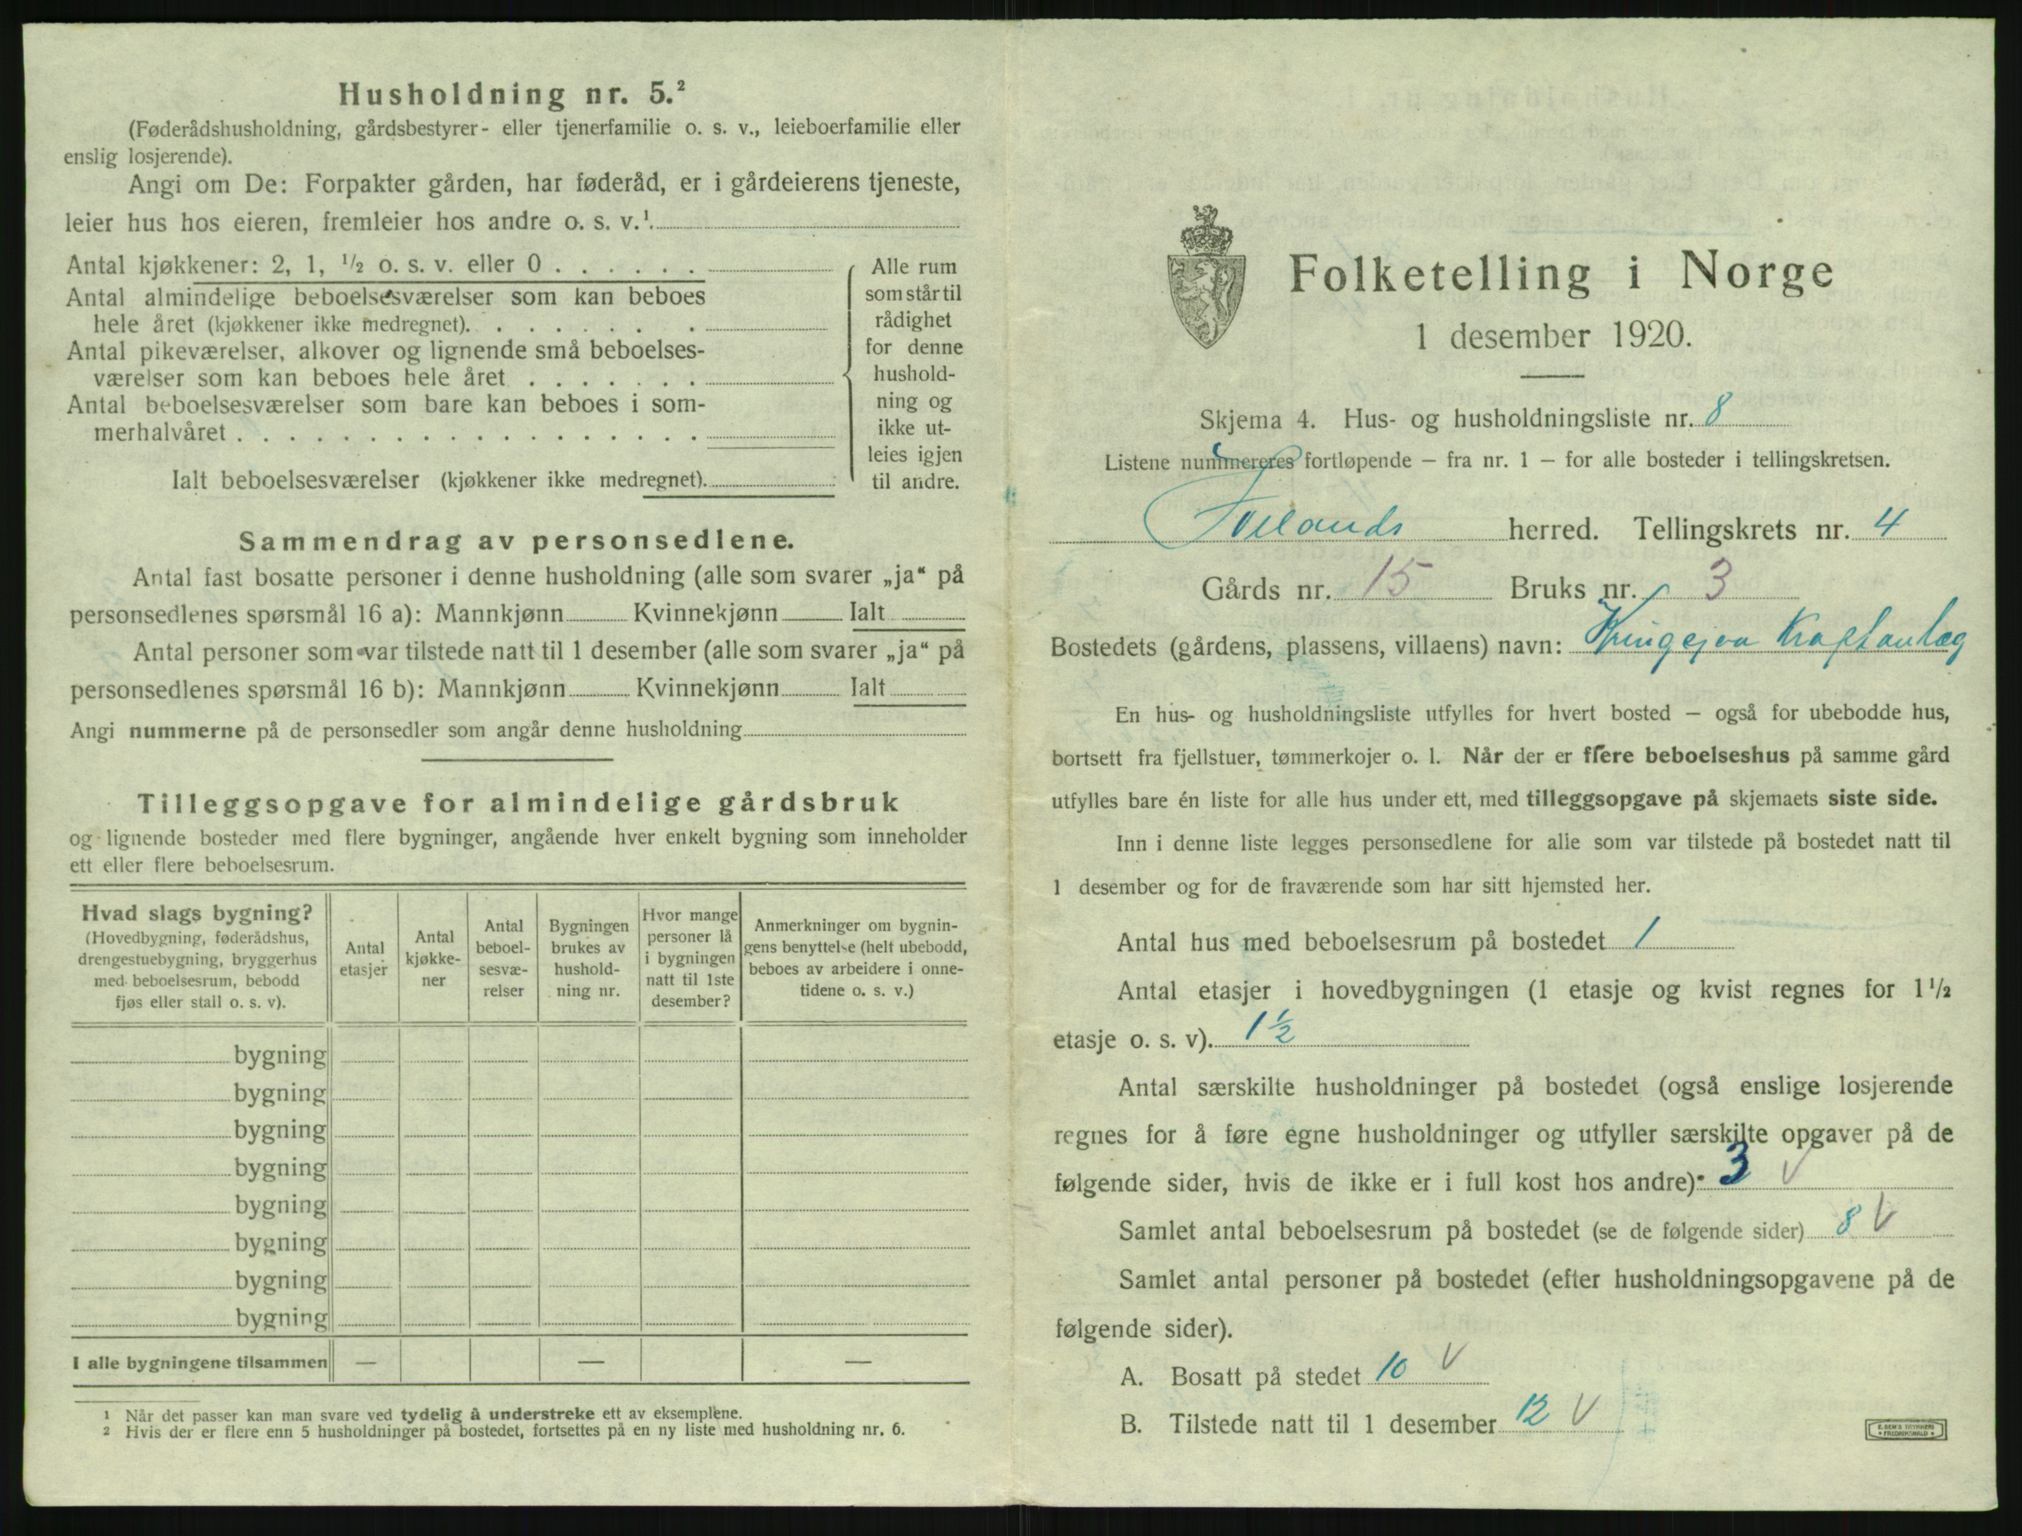 Husholdning nr. 5.²
(Føderådshusholdning, gårdsbestyrer- eller tjenerfamilie o. s. v., leieboerfamilie eller
enslig losjerende).
Angi om De: Forpakter gården, har føderåd, er i gårdeierens tjeneste,
leier hus hos eieren, fremleier hos andre o. s. v.¹
Antal kjøkkener: 2, 1, ½ o. s. v. eller 0 . . . . . .
Antal almindelige beboelsesværelser som kan beboes
hele året (kjøkkener ikke medregnet). . . . . . . .
Antal pikeværelser, alkover og lignende små beboelses-
værelser som kan beboes hele året . . . . . . .
Antal beboelsesværelser som bare kan beboes i som-
merhalvåret . . . . . . . . . . . . . . . . .
Ialt beboelsesværelser (kjøkkener ikke medregnet).
Alle rum
som står til
rådighet
for denne
hushold-
ning og
ikke ut-
leies igjen
til andre.
Sammendrag av personsedlene.
Antal fast bosatte personer i denne husholdning (alle som svarer „ja“ på
personsedlenes spørsmål 16 a): Mannkjønn Kvinnekjønn Ialt
Antal personer som var tilstede natt til 1 desember (alle som svarer „ja“ på
personsedlenes spørsmål 16 b): Mannkjønn Kvinnekjønn Ialt
Angi nummerne på de personsedler som angår denne husholdning
Tilleggsopgave for almindelige gårdsbruk
og lignende bosteder med flere bygninger, angående hver enkelt bygning som inneholder
ett eller flere beboelsesrum.
Hvad slags bygning?
(Hovedbygning, føderådshus,
drengestuebygning, bryggerhus
med beboelsesrum, bebodd
fjøs eller stall o. s. v).
Antal
etasjer
Antal
kjøkke-
ner
Antal
beboel-
sesvæ-
relser
Bygningen
brukes av
hushold-
ning nr.
Hvor mange
personer lå
i bygningen
natt til 1ste
desember?
Anmerkninger om bygnin-
gens benyttelse (helt ubebodd,
beboes av arbeidere i onne-
tidene o. s. v.)
bygning
bygning
bygning
bygning
bygning
bygning
bygning
bygning
I alle bygningene tilsammen — — —
¹ Når det passer kan man svare ved tydelig å understreke ett av eksemplene.
² Hvis der er flere enn 5 husholdninger på bostedet, fortsettes på en ny liste med husholdning nr. 6.
Folketelling i Norge
1 desember 1920.
Skjema 4. Hus- og husholdningsliste nr. 8
Listene nummereres fortløpende — fra nr. 1 — for alle bosteder i tellingskretsen.
herred. Tellingskrets nr. 4
Gårds nr. 15 Bruks nr. 3
Bostedets (gårdens, plassens, villaens) navn: Kringsjaa Kraftanlæg
En hus- og husholdningsliste utfylles for hvert bosted — også for ubebodde hus,
bortsett fra fjellstuer, tømmerkojer o. l. Når der er flere beboelseshus på samme gård
utfylles bare én liste for alle hus under ett, med tilleggsopgave på skjemaets siste side.
Inn i denne liste legges personsedlene for alle som var tilstede på bostedet natt til
1 desember og for de fraværende som har sitt hjemsted her.
Antal hus med beboelsesrum på bostedet 1
Antal etasjer i hovedbygningen (1 etasje og kvist regnes for 1½
etasje o. s. v). 1½
Antal særskilte husholdninger på bostedet (også enslige losjerende
regnes for å føre egne husholdninger og utfyller særskilte opgaver på de
følgende sider, hvis de ikke er i full kost hos andre). 3 V
Samlet antal beboelsesrum på bostedet (se de følgende sider) 8 V
Samlet antal personer på bostedet (efter husholdningsopgavene på de
følgende sider).
A. Bosatt på stedet 10 V
B. Tilstede natt til 1 desember 12 V